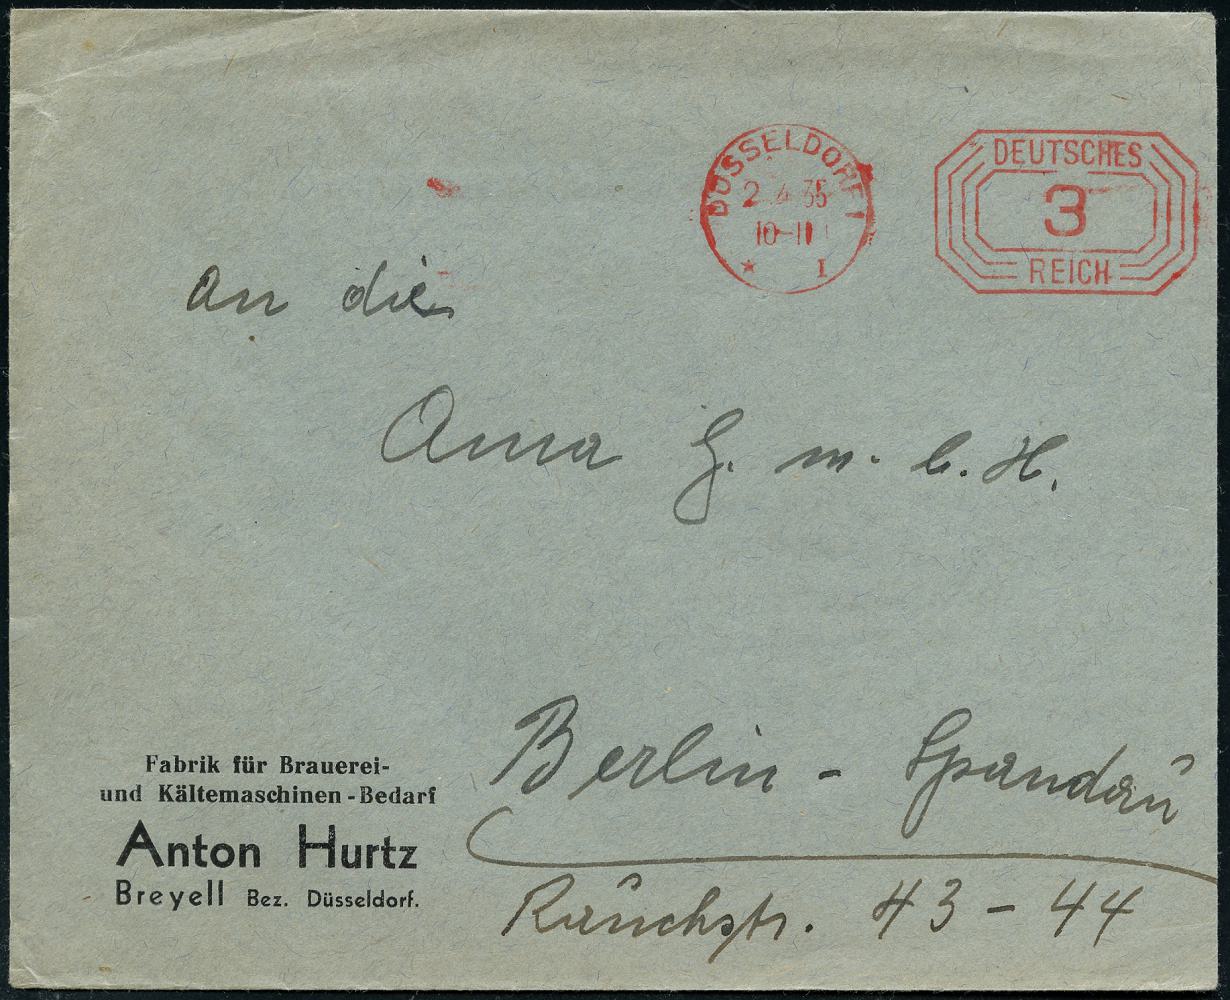 DÜSSELDORF 1
2.4.35
10-11
* I
DEUTSCHES
3
REICH
An die
Ama G. m. b. H.
Berlin - Spandau
Rauchstr. 43 - 44
Fabrik für Brauerei-
und Kältemaschinen-Bedarf
Anton Hurtz
Breyell Bez. Düsseldorf.